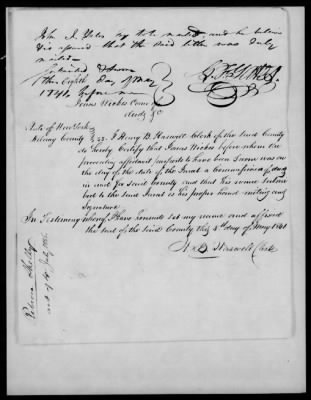 John J. Yates to be mailed, and he believes
& is assured that the said letter was duly
mailed
Subscribed & Sworn
this Eighth day of May
1841, before me
James Nockes Comr
of Deeds &c
State of New York
Albany County ss: I Henry B. Haswell Clerk of the said County
do hereby Certify that James Nockes before whom the
preceding affidavit purports to have been Sworn was on
the day of the date of the Jurat a Commissioner of deeds
in and for said County and that his name subscri
bed to the said Jurat is his proper hand writing and
Signature
In Testimony whereof, I have hereunto set my name and affixed
the seal of the said County this 8th day of May 1841
H. B. Haswell Clerk
Rebecca Shelley
act of 4th July 1836